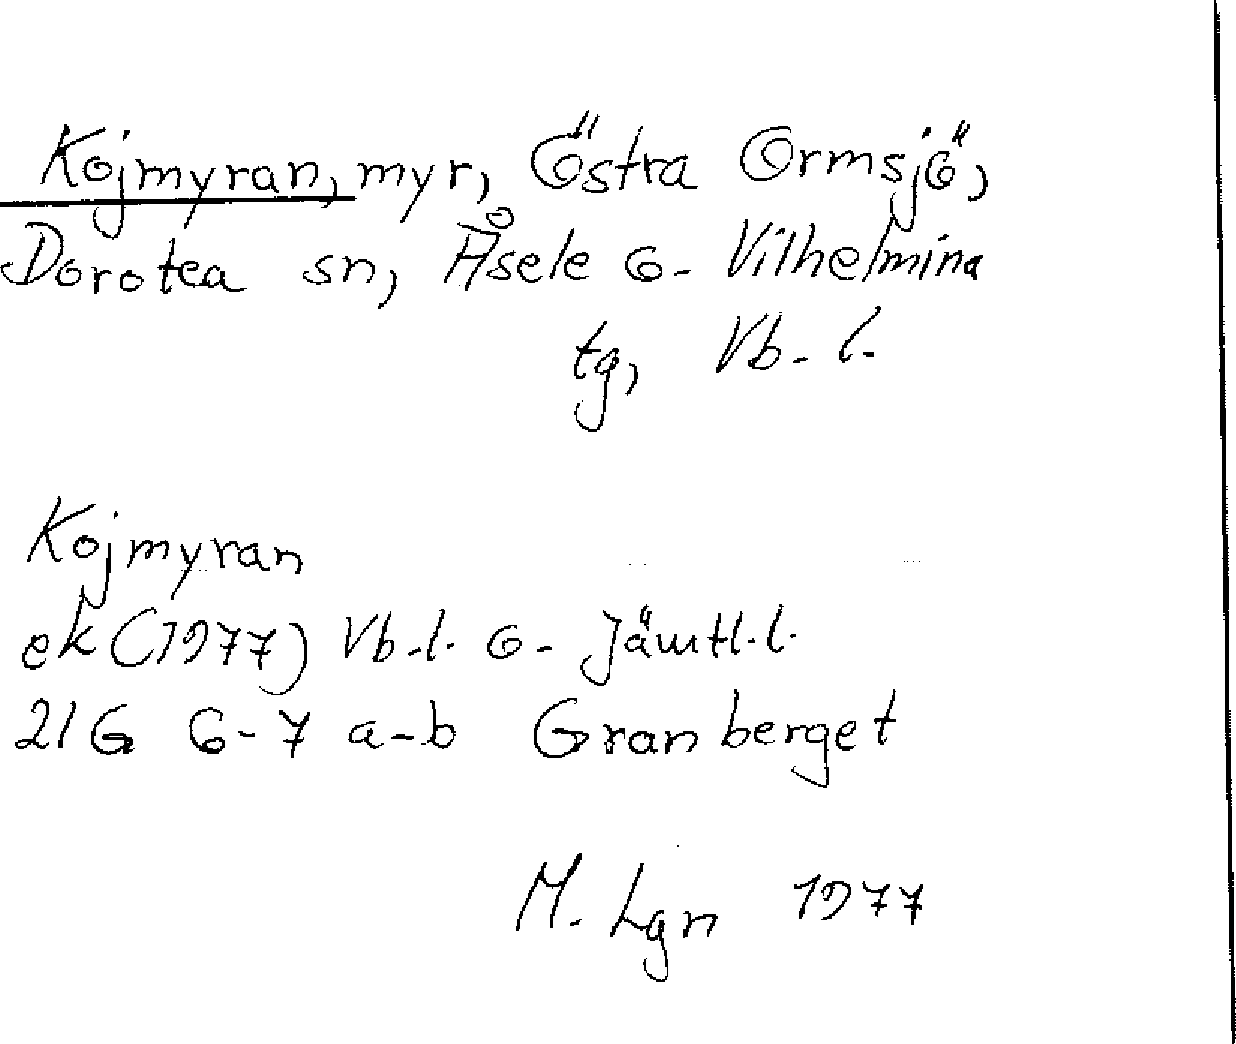 Kojmyran, myr, Östra Ormsjö,
Dorotea sn, Åsele o. Vilhelmina
tg, Vb. l.
Kojmyran
ek (1977) Vb.l. o. Jämtl.l.
21G 6-7 a-b Granberget
M. Lgn 1977